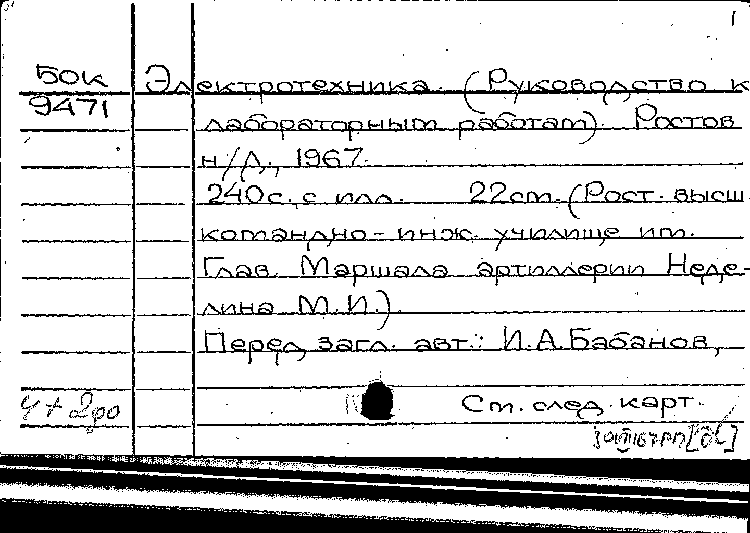 1
БОК Электротехника. (Руководство к
9471 лабораторным работам). Ростов
н/Д., 1967.
240с. с илл. 22ст. (Рост. высш.
командно-инж. училище им.
Глав. Маршала артиллерии Неде-
лина М.И.).
Перед загл. авт.: И.А.Бабанов,
См. след. карт.